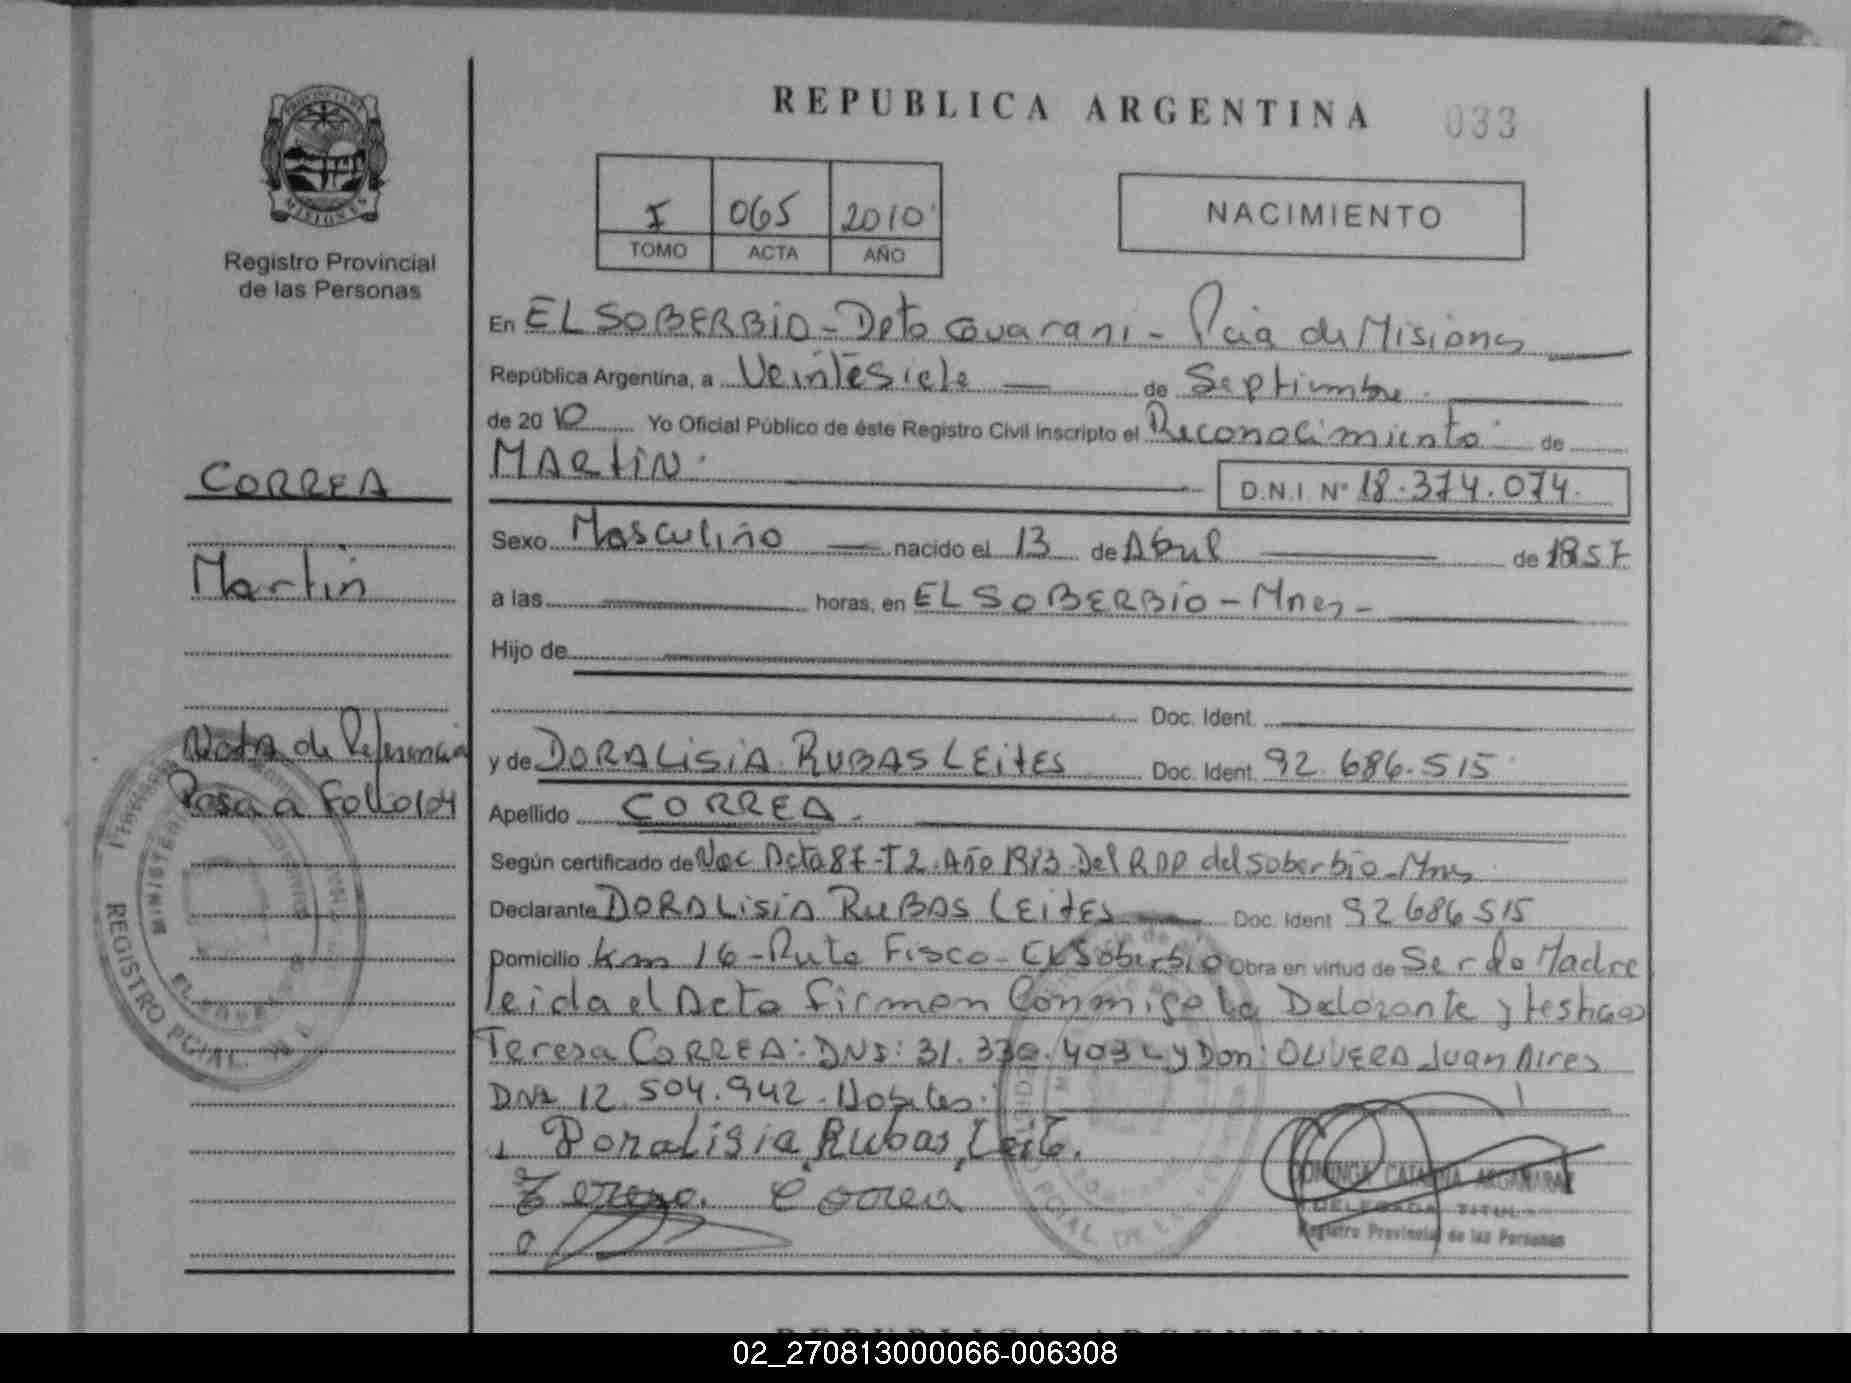 REPUBLICA ARGENTINA
033
PROVINCIA DE
MISIONES
Registro Provincial
de las Personas
I 065 2010
TOMO ACTA AÑO
NACIMIENTO
En EL SOBERBIO - Dpto Guarani - Pcia de Misiones
República Argentina, a Veintesiete de Septiembre
de 2010 Yo Oficial Público de éste Registro Civil Inscripto el Reconocimiento de
MARTIN. D.N.I. Nº 18.374.074.
CORREA
Sexo Masculino nacido el 13 de Abril de
Martin
a las horas, en EL SOBERBIO - Mnes -
Hijo de
Doc. Ident.
Nota de Referencia
y de DORALISIA RUBAS LEITES Doc. Ident. 92.686.515
Pasa a Folio 104
Apellido CORREA.
Según certificado de Nac Acta 87-T2. Año Del RPP del Soberbio - Mnes
Declarante DORALISIA RUBAS LEITES Doc. Ident 92 686 515
Domicilio Km 16 - Ruta Fisco - El Soberbio Obra en virtud de Ser la Madre
leida el Acta firman Conmigo la Declarante y testigos
Teresa CORREA: DNI: 31.330.403 y Don: OLIVERA Juan Aires
DNI 12.504.942. Habiles.
Doralisia Rubas Leite.
Tereza. Correa
DOMINGA CATALINA ARGAÑARAZ
DELEGADA TITULAR
Registro Provincial de las Personas
REGISTRO PCIAL.
MINISTERIO
EL SOBERBIO
PCIAL DE
REPUBLICA ARGENTINA
02_270813000066-006308